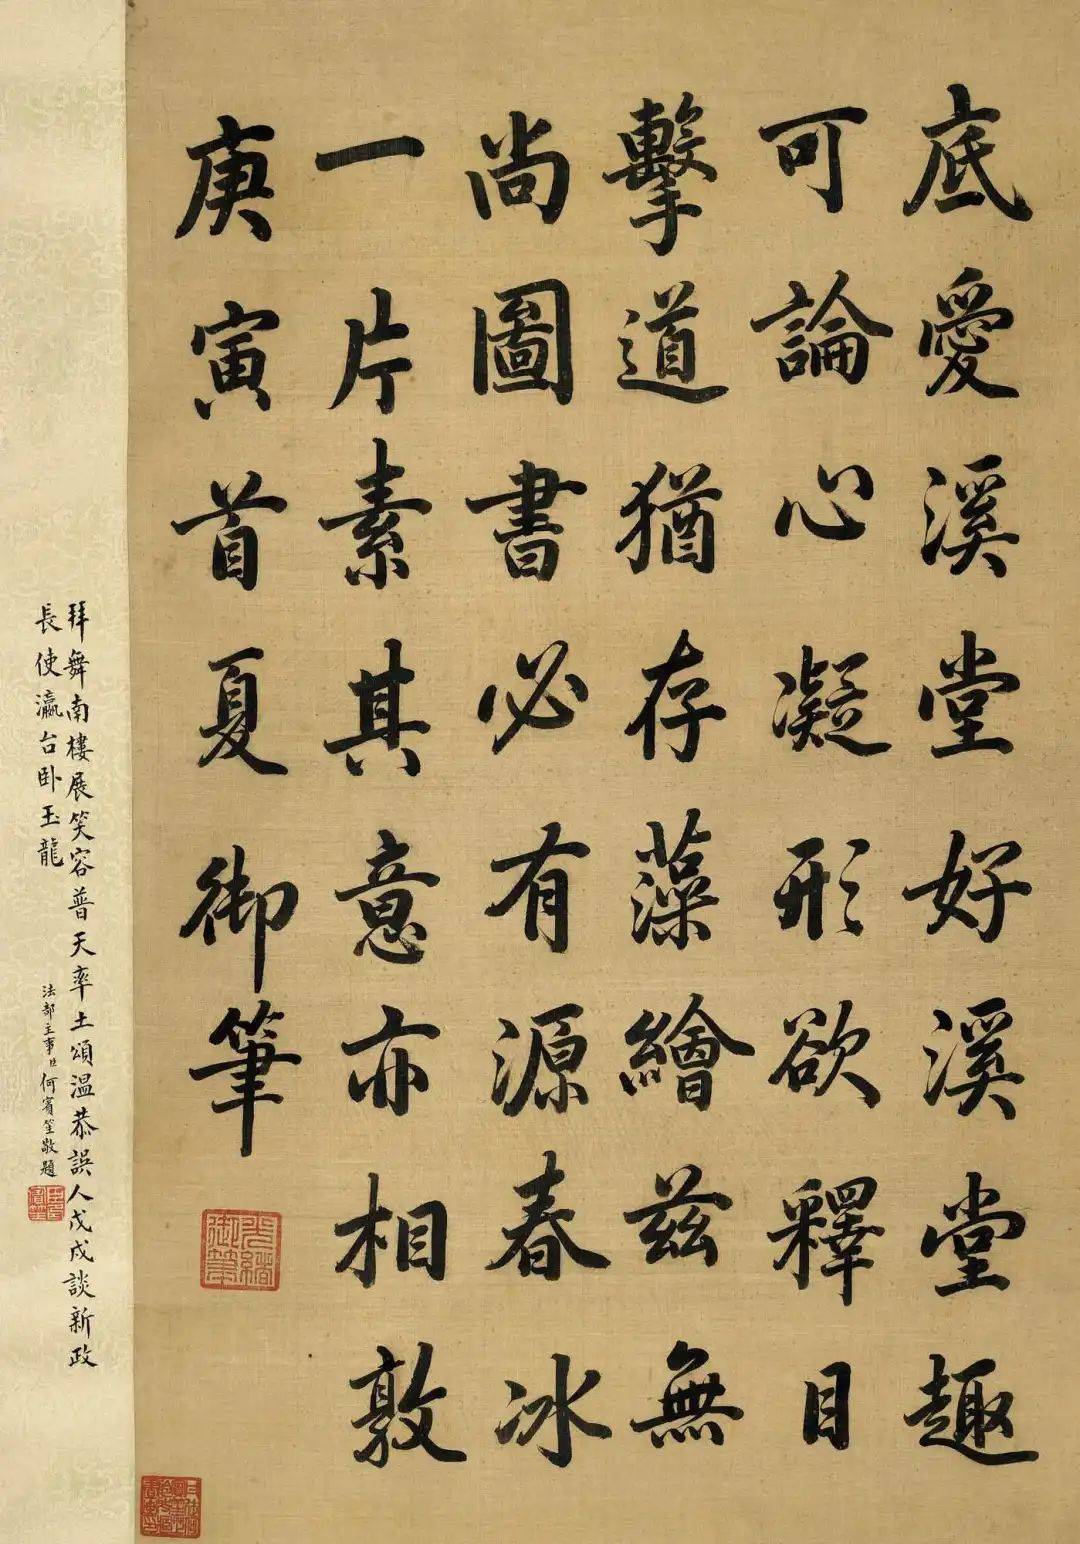 底愛溪堂好溪堂趣
可論心凝形欲釋目
擊道猶存藻繪茲無
尚圖書必有源春冰
一片素其意亦相敦
庚寅首夏御筆
光緒御筆
拜舞南樓展笑容普天率土頌溫恭誤人戊戌談新政
長使瀛台卧玉龍
法部主事臣何賓笙敬題